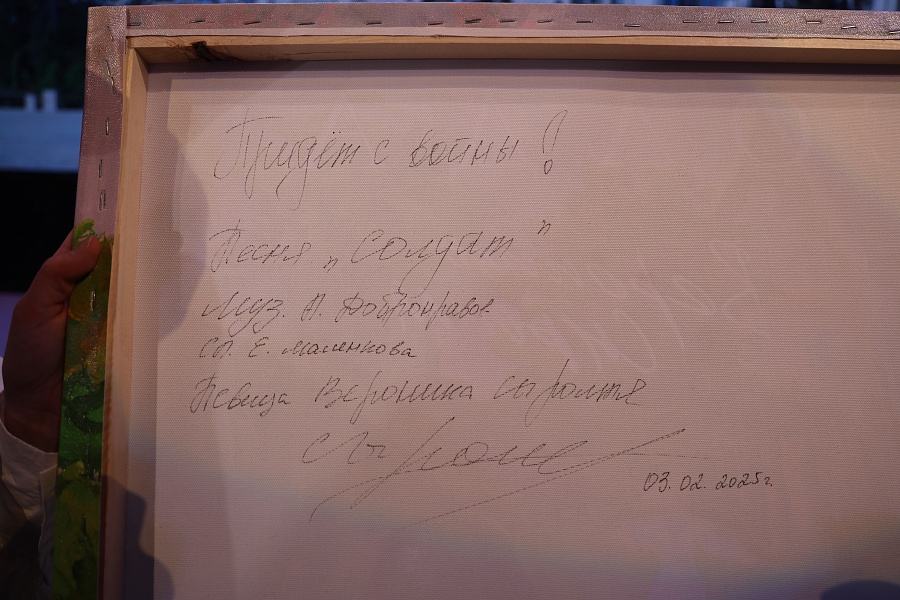 Придёт с войны!
Песня „Солдат"
Муз. А. Добронравов
Сл. Е. Маленкова
Певица Вероника Сыромля
03.02.2025г.